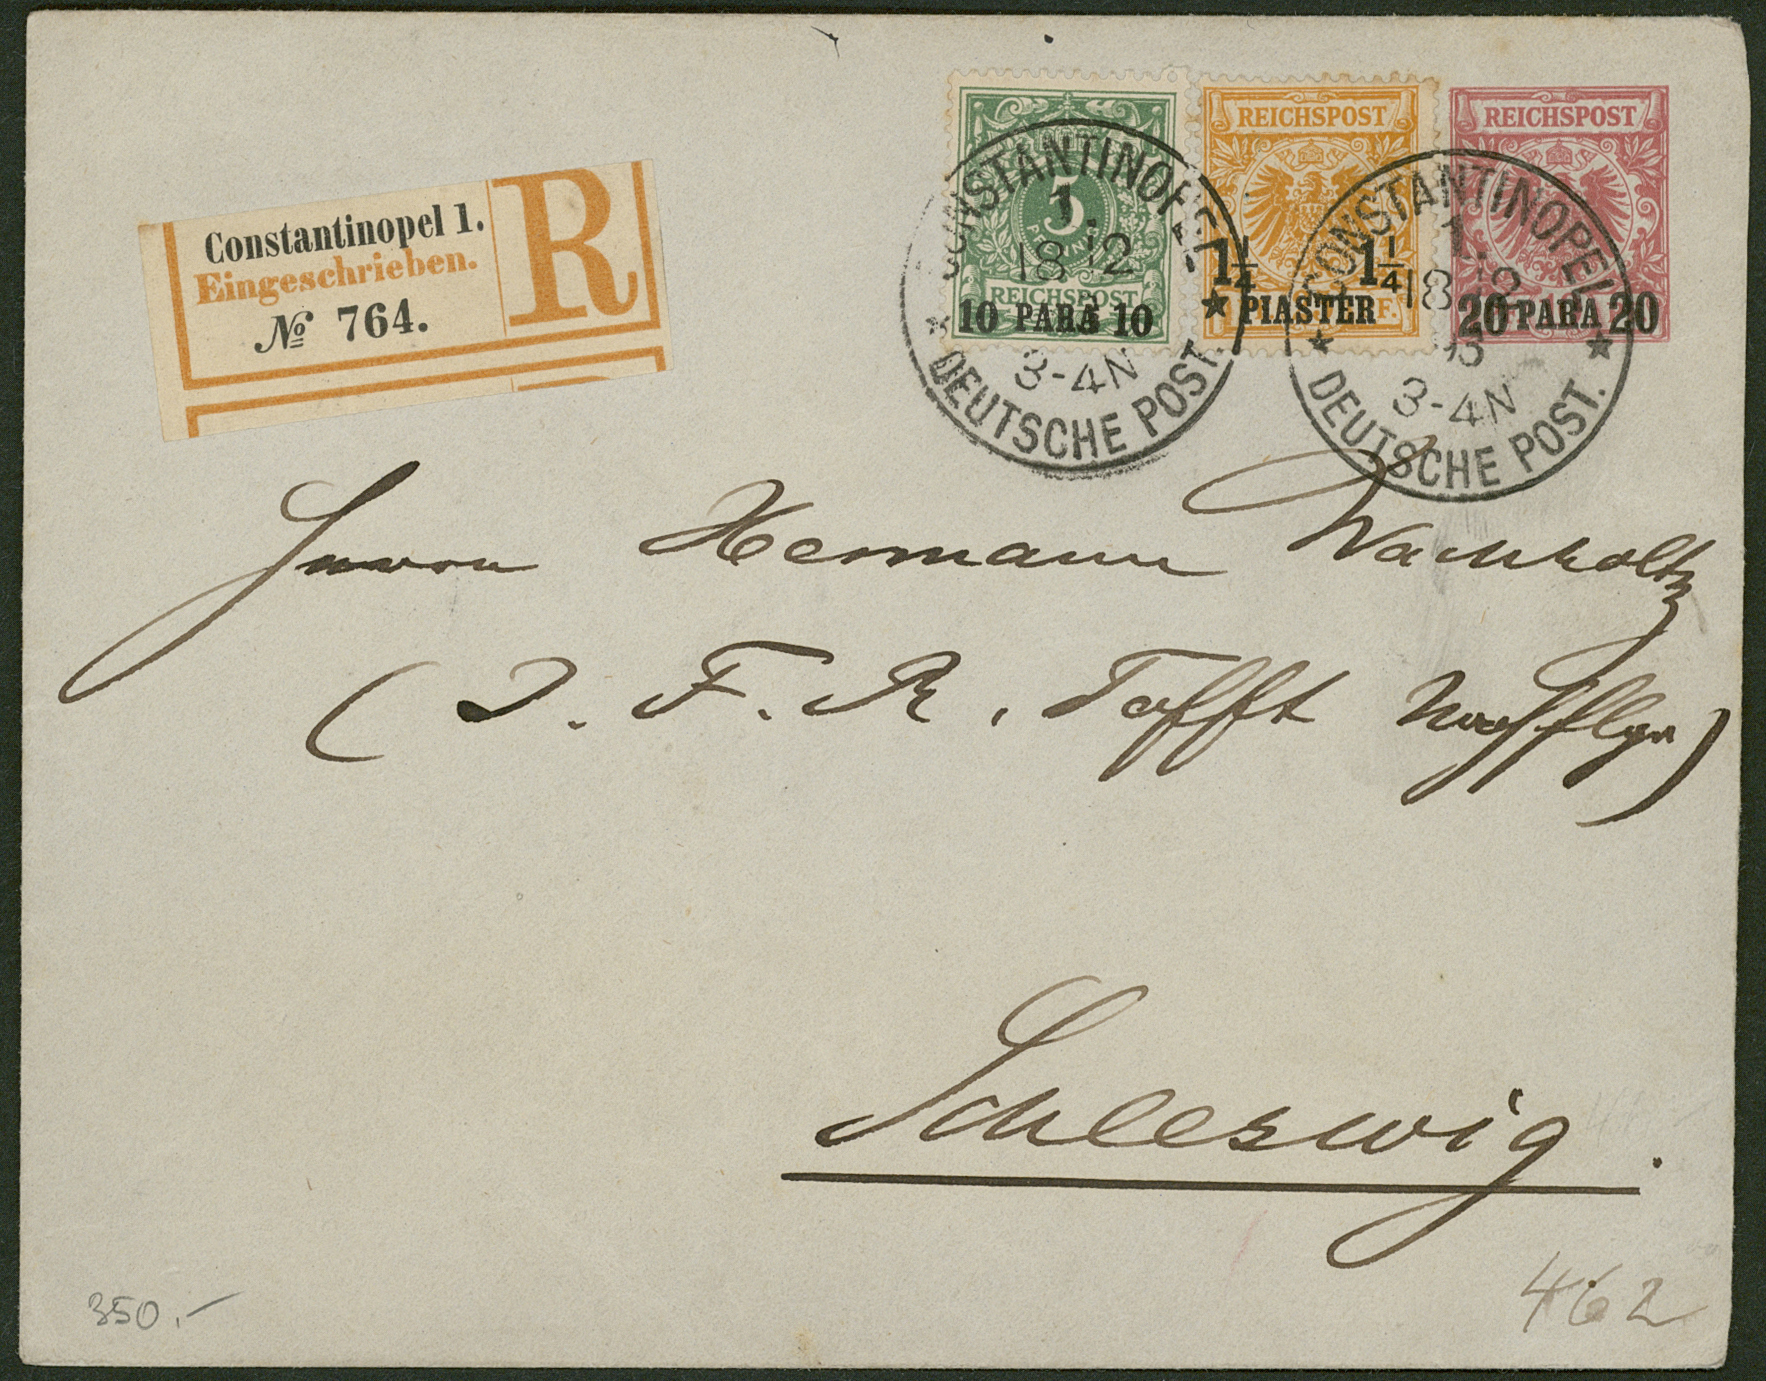 Constantinopel 1.
Eingeschrieben.
№ 764.
R
5
REICHSPOST
10 PARA 10
REICHSPOST
1 1/4 1 1/4
PIASTER
REICHSPOST
20 PARA 20
CONSTANTINOPEL
1.
18 12
3-4N
DEUTSCHE POST.
CONSTANTINOPEL
1.
18 12
3-4N
DEUTSCHE POST.
Herrn Hermann Wachholtz
(J. F. R. Tofft
Schleswig.
350.-
462